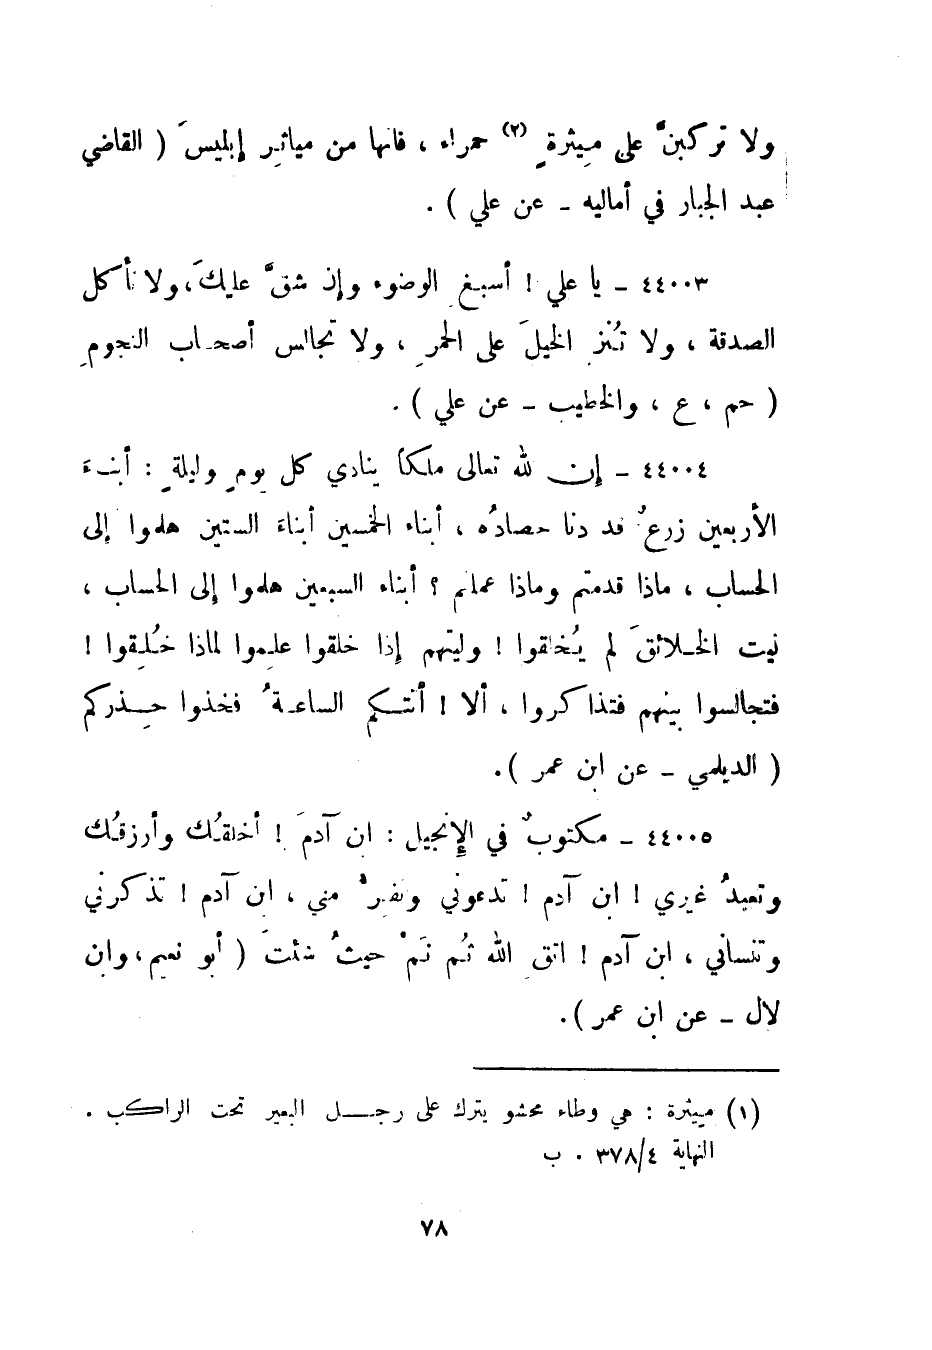 ولا تركبنَّ على مِيثرةٍ (٢) حمراء ، فانها من مياثِر إبليسَ ( القاضي
عبد الجبار في أماليه ـ عن علي ) .
٤٤٠٠٣ ـ يا علي ! أسبغِ الوضوء وإن شقَّ عليكَ ، ولا تأكل
الصدقة ، ولا تُنزِ الخيلَ على الحمرِ ، ولا تجالس أصحاب النجومِ
( حم ، ع ، والخطيب ـ عن علي ) .
٤٤٠٠٤ ـ إن لله تعالى ملكاً ينادي كل يومٍ وليلةٍ : أبناءَ
الأربعين زرعٌ قد دنا حصادُه ، أبناء الخمسين أبناءَ الستين هلموا إلى
الحساب ، ماذا قدمتم وماذا عملتم ؟ أبناء السبعين هلموا إلى الحساب ،
ليت الخلائقَ لم يُخلقوا ! وليتهم إذا خلقوا علِموا لماذا خُلِقوا !
فتجالسوا بينهم فتذاكروا ، ألا ! أتتكم الساعةُ فخذوا حِذركم
( الديلمي ـ عن ابن عمر ) .
٤٤٠٠٥ ـ مكتوبٌ في الإِنجيل : ابن آدمَ ! أخلقُك وأرزقُك
وتعبدُ غيري ! ابن آدم ! تدعوني وتفِرُّ مني ، ابن آدم ! تذكرني
وتنساني ، ابن آدم ! اتقِ الله ثُم نَمْ حيثُ شئتَ ( أبو نعيم ، وابن
لال ـ عن ابن عمر ) .
(١) ميثرة : هي وطاء محشو يترك على رحل البعير تحت الراكب .
النهاية ٣٧٨/٤ . ب
٧٨